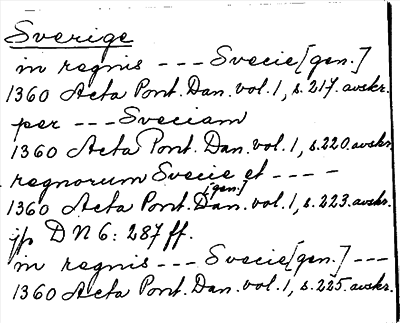 Sverige
in regnis --- Svecie [gen.]
1360 Acta Pont. Dan. vol. 1, s. 217. avskr.
per --- Sveciam
1360 Acta Pont. Dan. vol. 1, s. 220. avskr.
regnorum Svecie et ----
[gen.]
1360 Acta Pont. Dan. vol. 1, s. 223. avskr.
jfr D N 6: 287 ff.
in regnis --- Svecie [gen.] ---
1360 Acta Pont. Dan. vol. 1, s. 225. avskr.